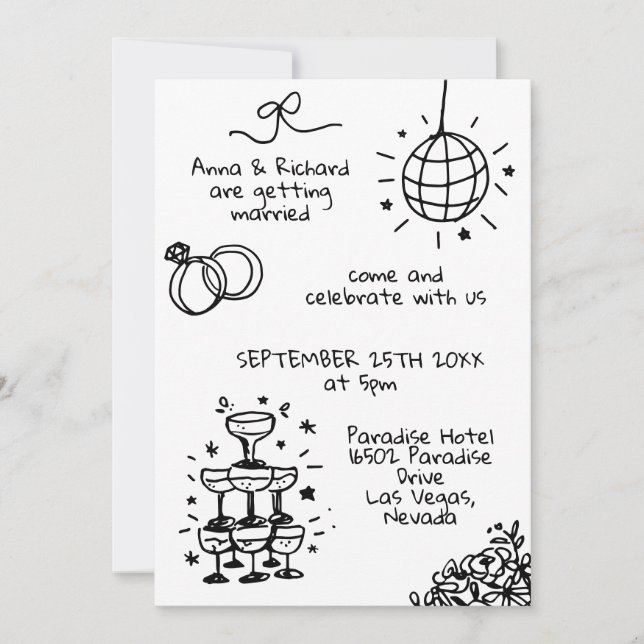 Anna & Richard
are getting
married
come and
celebrate with us
SEPTEMBER 25TH 20XX
at 5pm
Paradise Hotel
16502 Paradise
Drive
Las Vegas,
Nevada